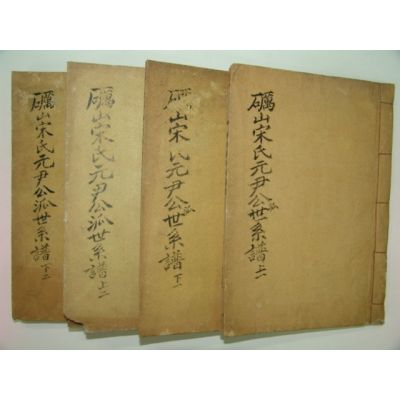 礪山宋氏元尹公派世系譜 上一
礪山宋氏元尹公派世系譜 下一
礪山宋氏元尹公派世系譜 上二
礪山宋氏元尹公派世系譜 下二